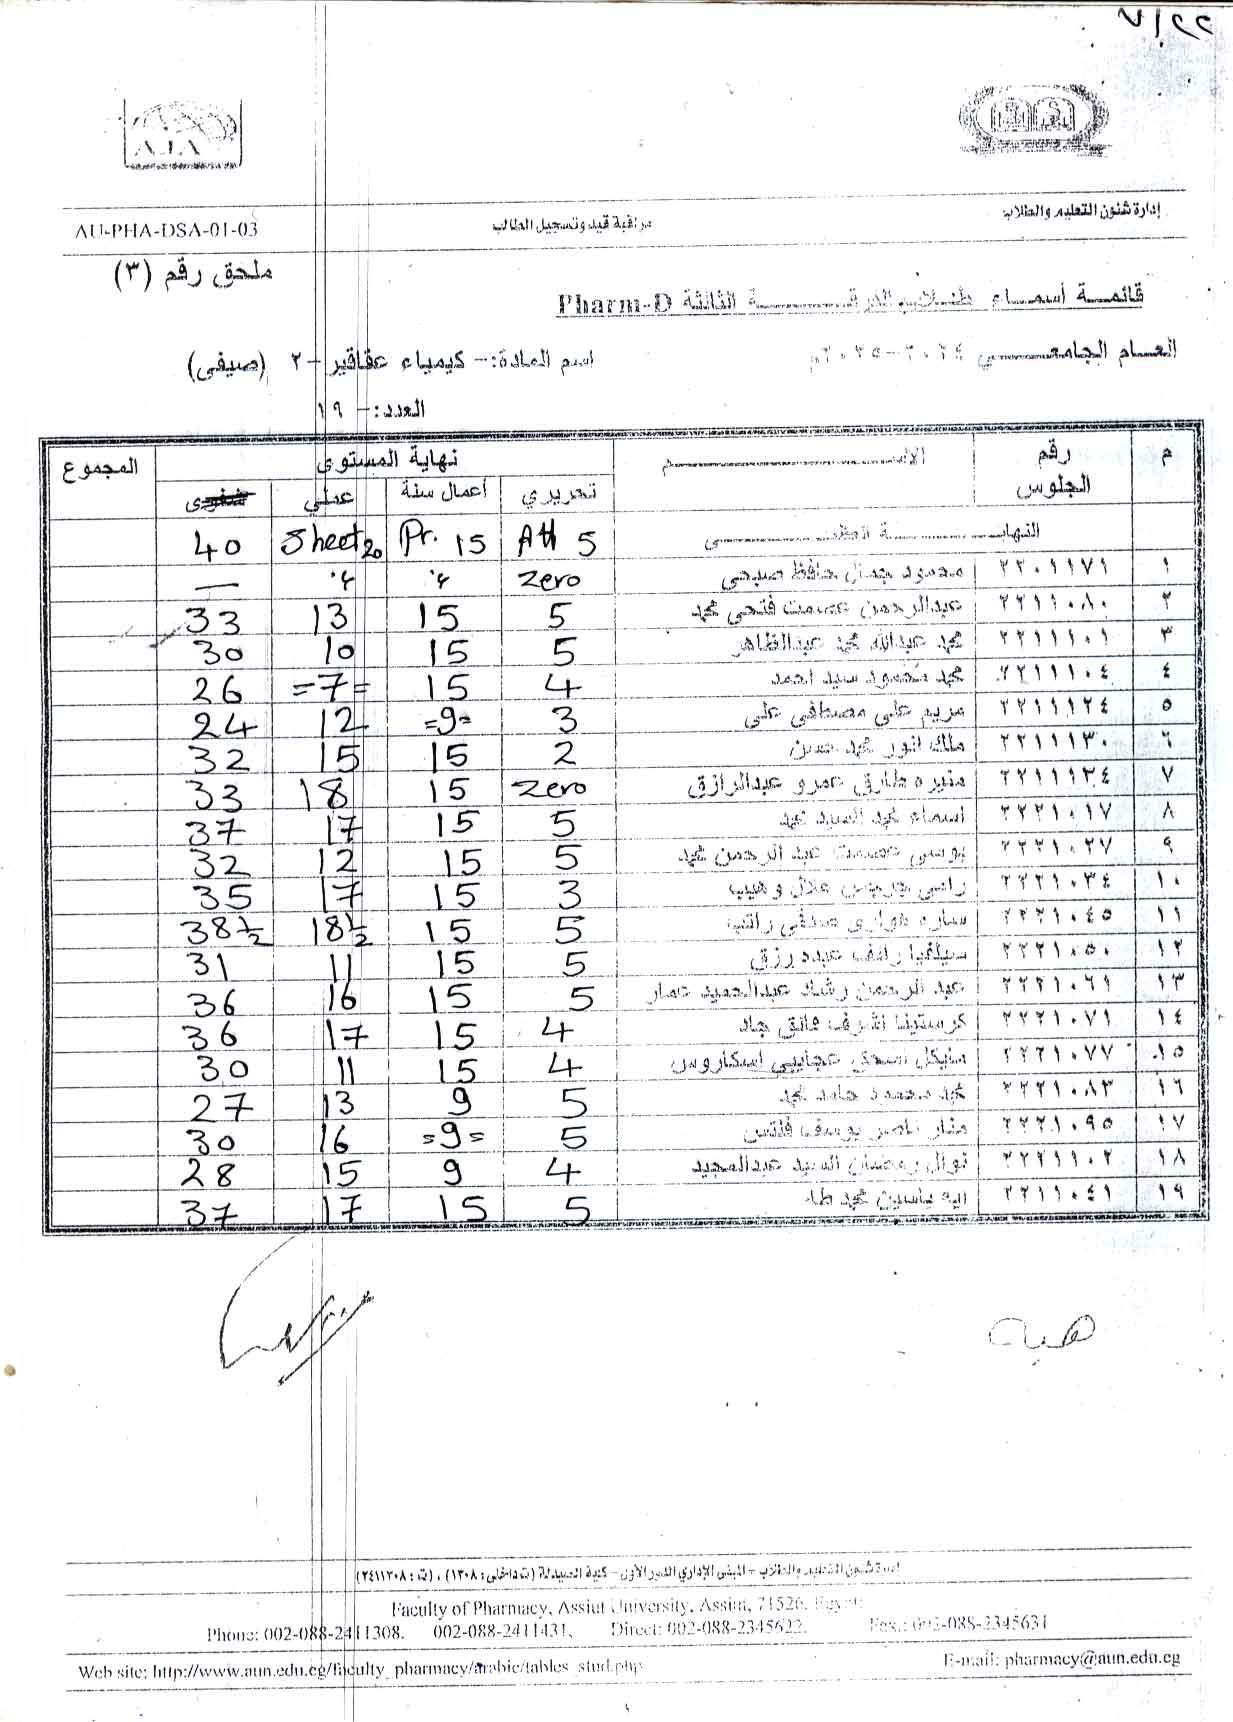 ٧/٢٢
AJA
إدارة شئون التعليم والطلاب
مراقبة قيد وتسجيل الطالب
AU-PHA-DSA-01-03
ملحق رقم (٣)
قائمة أسماء طلاب الفرقة الثالثة Pharm-D
العام الجامعي ٢٠٢٤-٢٠٢٥م اسم المادة:- كيمياء عقاقير -٢ (صيفى)
العدد:- ١٩
م رقم الجلوس الاسم نهاية المستوى المجموع
تحريري أعمال سنة عملي شفوى
النهاية العظمى Att 5 Pr. 15 Sheet 20 40
١ ٢٢٠١١٧١ محمود جمال حافظ صبحى zero غ غ —
٢ ٢٢١١٠٨٠ عبدالرحمن عصمت فتحى محمد 5 15 13 33
٣ ٢٢١١١٠١ محمد عبدالله محمد عبدالظاهر 5 15 10 30
٤ ٢٢١١١٠٤ محمد محمود سيد احمد 4 15 =7= 26
٥ ٢٢١١١٢٤ مريم على مصطفى على 3 =9= 12 24
٦ ٢٢١١١٣٠ ملك انور محمد حسن 2 15 15 32
٧ ٢٢١١١٣٤ منيره طارق عمرو عبدالرازق zero 15 18 33
٨ ٢٢٢١٠١٧ اسماء محمد السيد محمد 5 15 17 37
٩ ٢٢٢١٠٢٧ يوسى عصمت عبد الرحمن محمد 5 15 12 32
١٠ ٢٢٢١٠٣٤ راضى جرجس علال وهيب 3 15 17 35
١١ ٢٢٢١٠٤٥ ساره فوزى صدقى راتب 5 15 18½ 38½
١٢ ٢٢٢١٠٥٠ سيلفيا رائف عبده رزق 5 15 11 31
١٣ ٢٢٢١٠٦١ عبد الرحمن رشاد عبدالحميد عمار 5 15 16 36
١٤ ٢٢٢١٠٧١ كرستينا اشرف فائق جاد 4 15 17 36
١٥ ٢٢٢١٠٧٧ مايكل اسحق عجايبى اسكاروس 4 15 11 30
١٦ ٢٢٢١٠٨٣ محمد محمود حامد محمد 5 9 13 27
١٧ ٢٢٢١٠٩٥ منار ناصر يوسف فلتس 5 =9= 16 30
١٨ ٢٢٢١١٠٢ نوال رمضان السيد عبدالمجيد 4 9 15 28
١٩ ٢٢١١٠٤١ ايه ياسين محمد طه 5 15 17 37
هبة
إدارة شئون التعليم والطلاب – المبنى الإداري الدور الأول – كلية الصيدلة (ت داخلى: ١٣٠٨) ، (ت: ٢٤١١٣٠٨)
Faculty of Pharmacy, Assiut University, Assiut, 71526, Egypt
Phone: 002-088-2411308, 002-088-2411431, Direct: 002-088-2345622, Fax.: 002-088-2345631
Web site: http://www.aun.edu.eg/faculty_pharmacy/arabic/tables_stud.php E-mail: pharmacy@aun.edu.eg